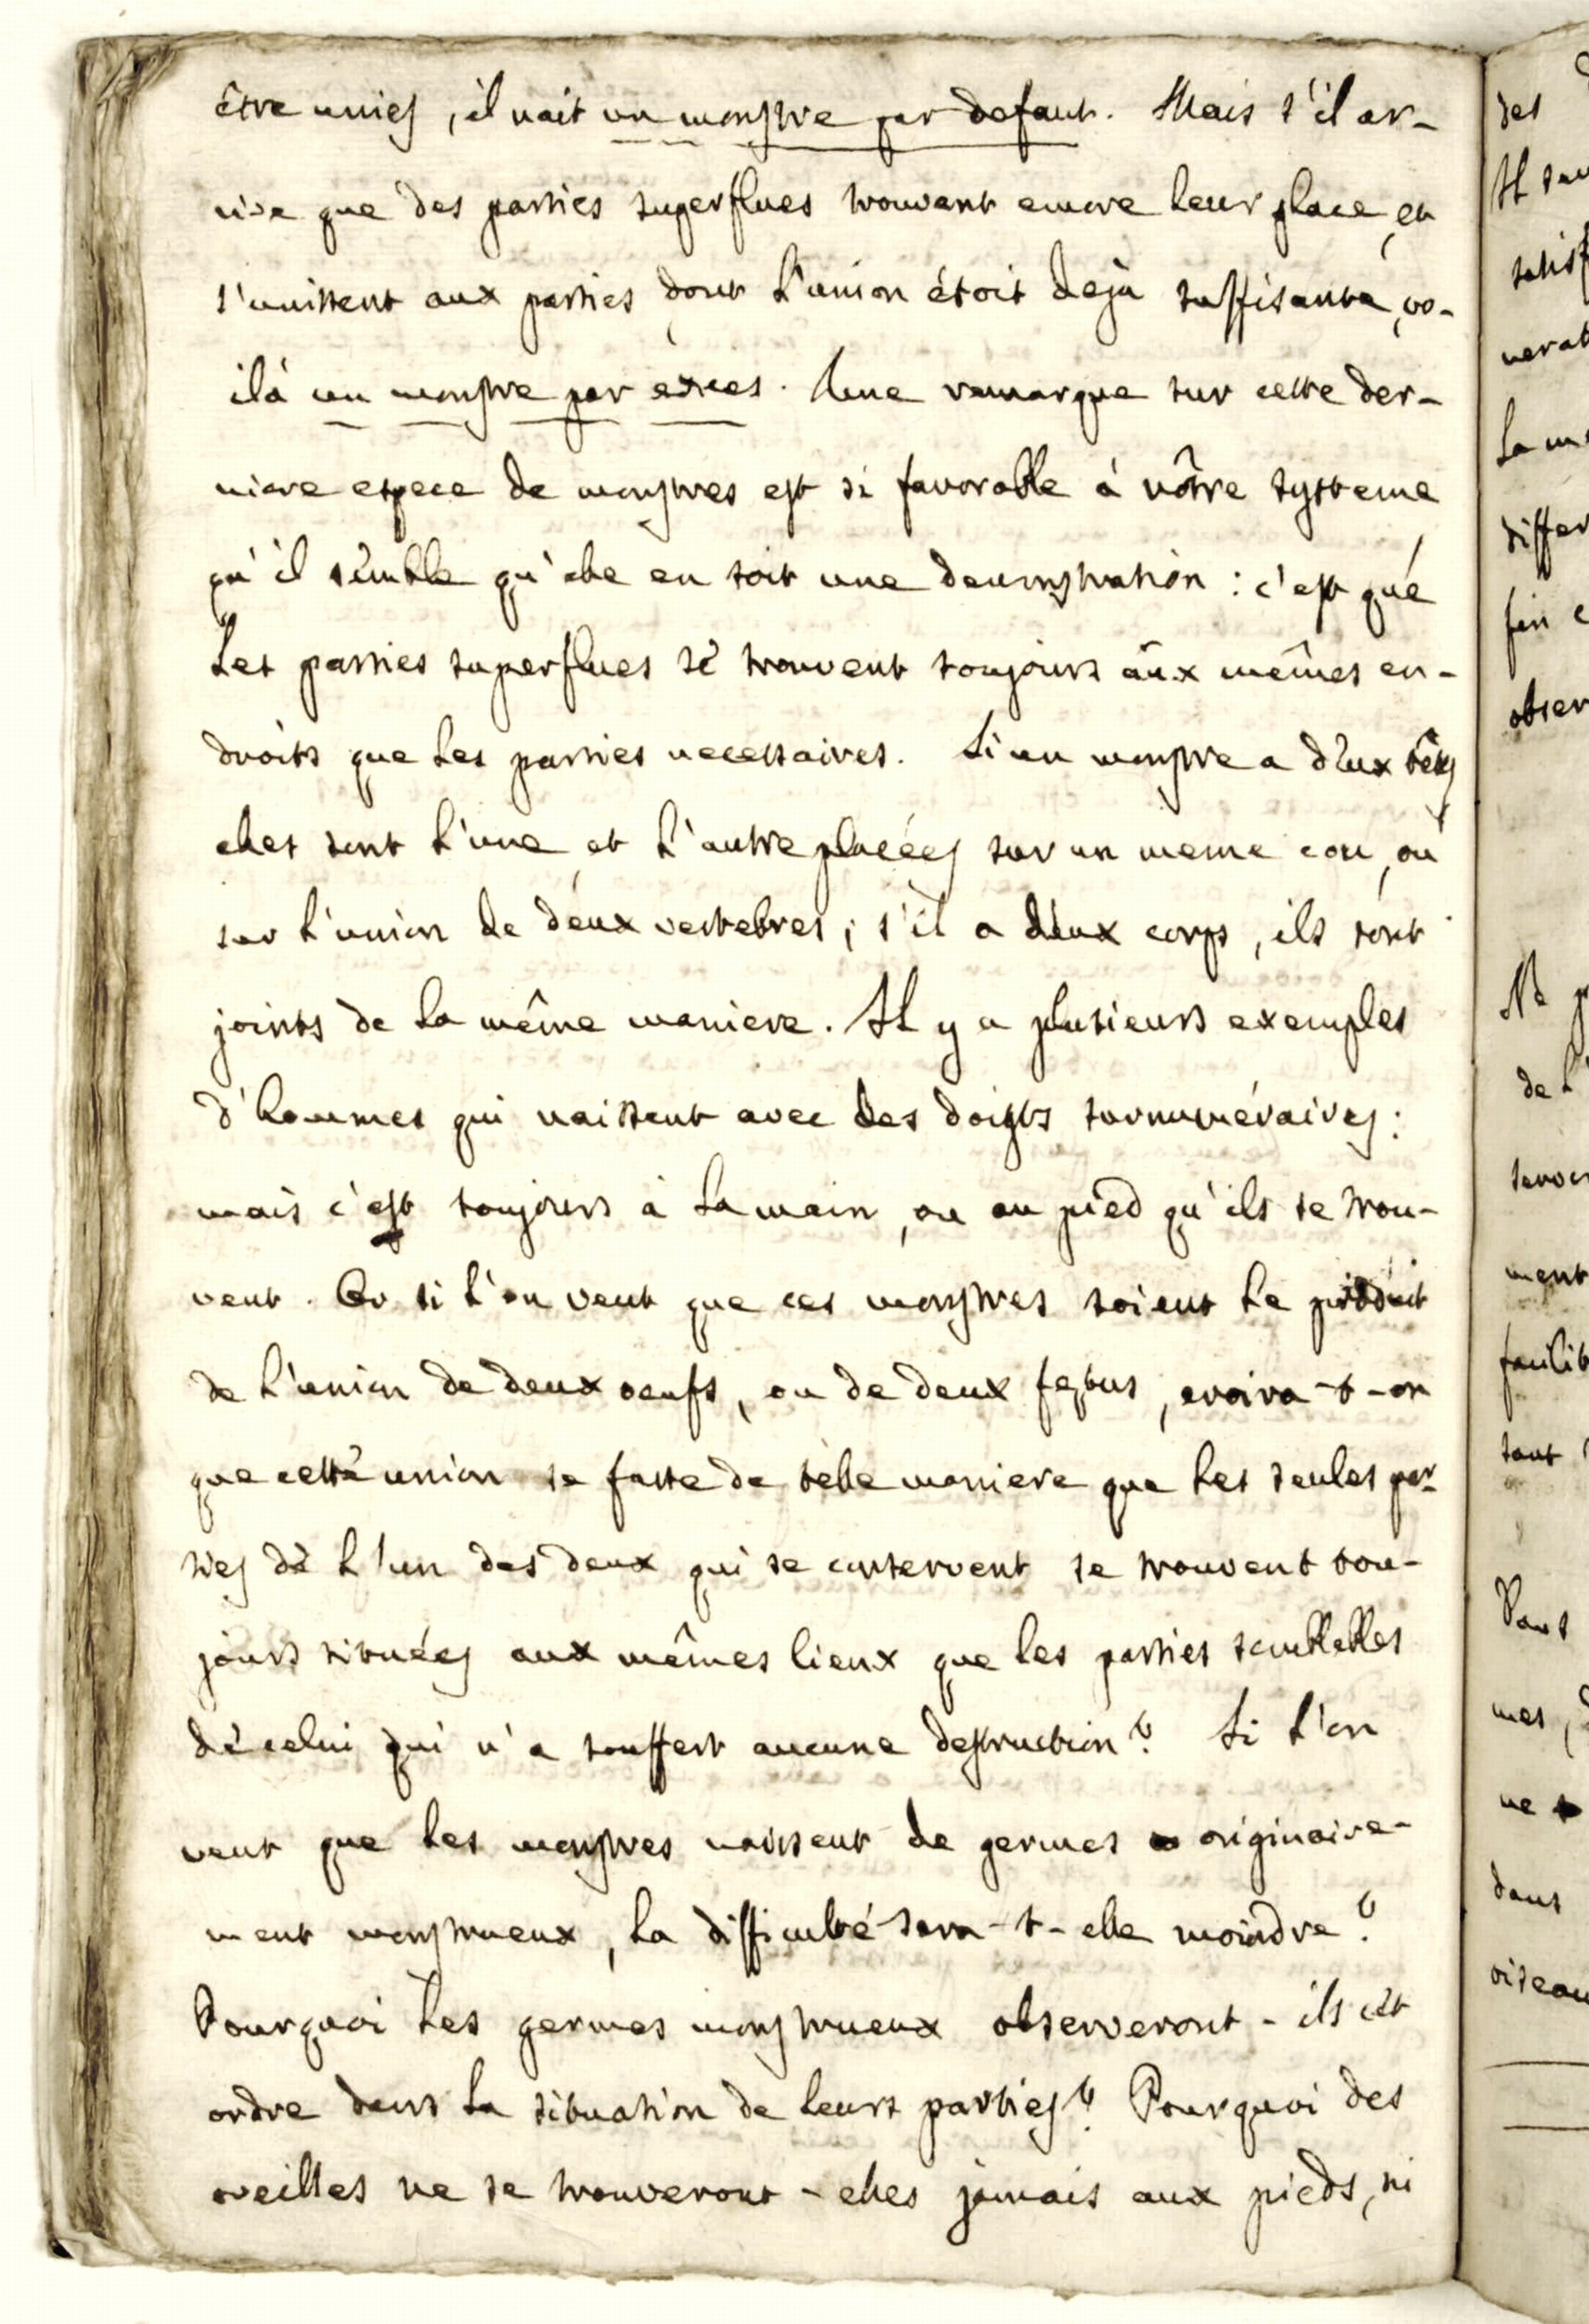 être unies, il nait un monstre par defaut. Mais s'il ar-
rive que des parties superflues trouvent encore leur place, et
s'unissent aux parties dont l'union étoit deja suffisante, vo-
ilà un monstre par exces. Une remarque sur cette der-
niere espece de monstres est si favorable à vôtre systeme
qu'il semble qu'elle en soit une demonstration : c'est que
les parties superflues se trouvent toujours aux mêmes en-
droits que les parties necessaires. Si un monstre a deux têtes
elles sont l'une et l'autre placées sur un meme cou, ou
sur l'union de deux vertebres ; s'il a deux corps, ils sont
joints de la même maniere. Il y a plusieurs exemples
d'hommes qui naissent avec des doigts surnuméraires :
mais c'est toujours à la main, ou au pied qu'ils se trou-
vent. Or si l'on veut que ces monstres soient le produit
de l'union de deux oeufs, ou de deux foetus, croira-t-on
que cette union se fasse de telle maniere que les seules par-
ties de l'un des deux qui se conservent se trouvent tou-
jours situées aux mêmes lieux que les parties semblables
de celui qui n'a souffert aucune destruction ? Si l'on
veut que les monstres naissent de germes originaire-
ment monstrueux, la difficulté sera-t-elle moindre ?
Pourquoi les germes monstrueux observeront-ils cet
ordre dans la situation de leurs parties ? Pourquoi des
oreilles ne se trouveront-elles jamais aux pieds, ni
des
satisf
La m
differ
fin
obser
de l'
ment
facilit
tout
mes,
ne
dans
oiseau